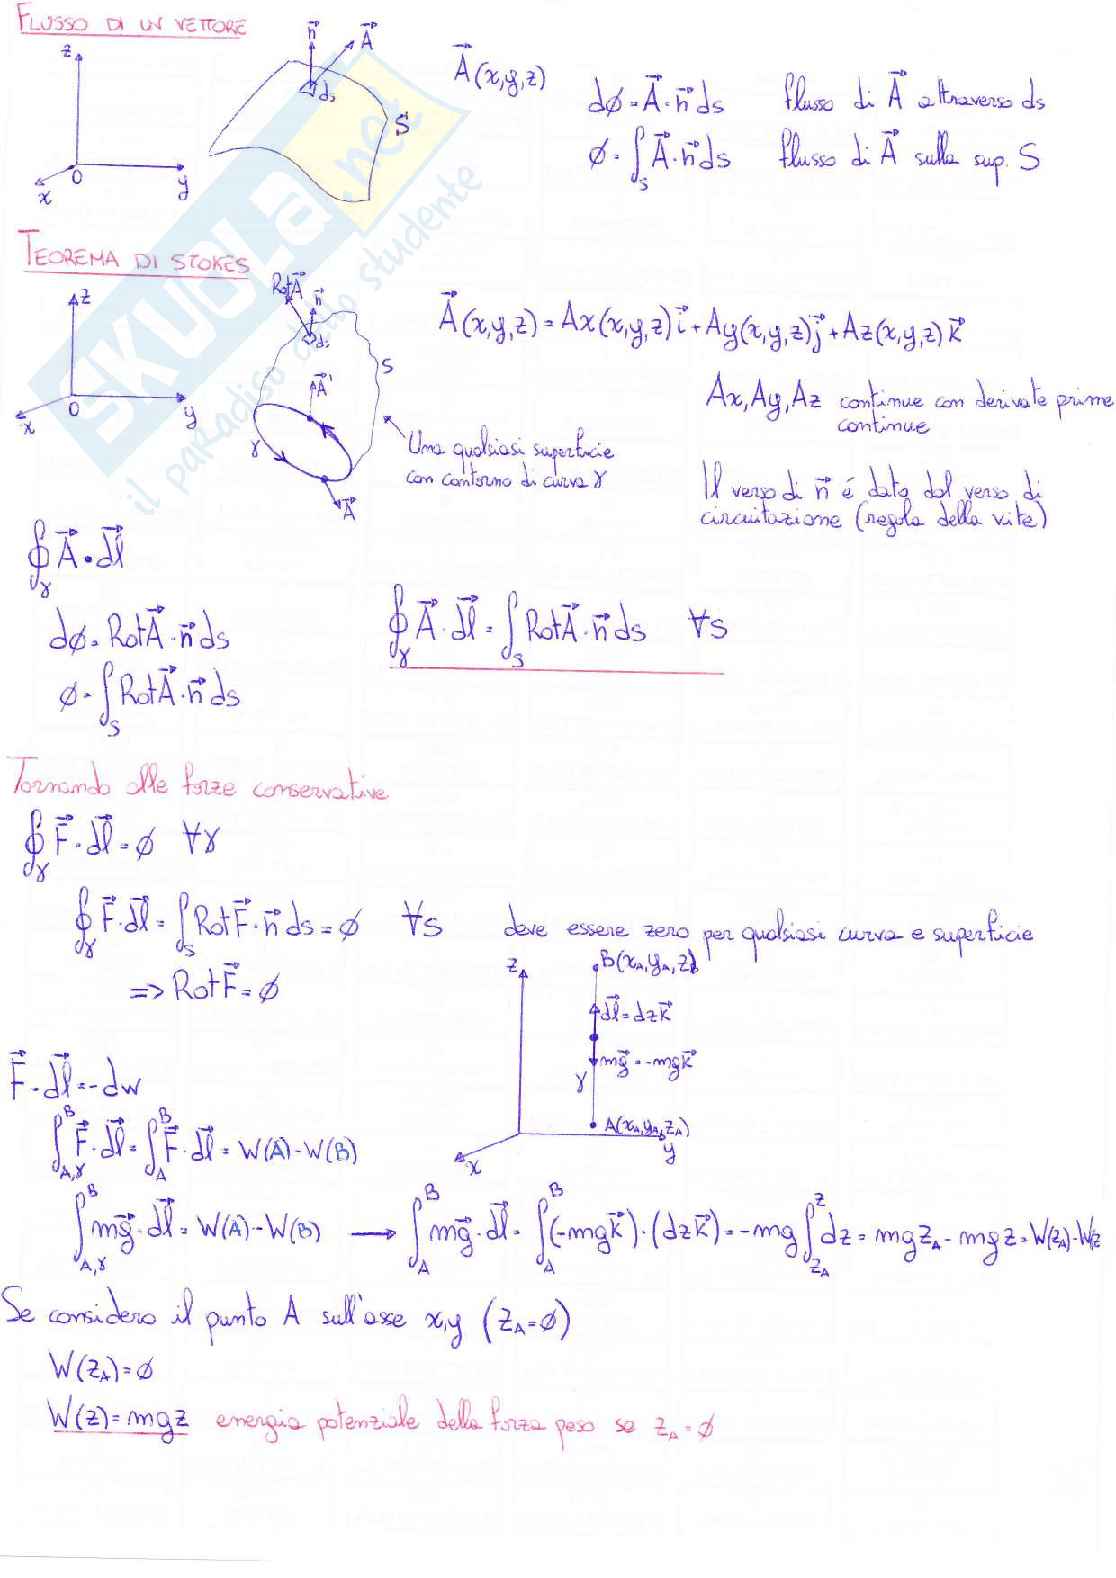 FLUSSO DI UN VETTORE
z n⃗ A⃗
ds
S
O
x y
A⃗(x,y,z)
dø = A⃗·n⃗ ds flusso di A⃗ attraverso ds
ø = ∫_S A⃗·n⃗ ds flusso di A⃗ sulla sup. S
SKUOLA.net
il paradiso dello studente
TEOREMA DI STOKES
z
O
x y
RotA⃗ n⃗
ds
S
A⃗'
γ
A⃗
Una qualsiasi superficie
con contorno di curva γ
A⃗(x,y,z) = Ax(x,y,z) i⃗ + Ay(x,y,z) j⃗ + Az(x,y,z) k⃗
Ax, Ay, Az continue con derivate prime
continue
Il verso di n⃗ é dato dal verso di
circuitazione (regola della vite)
∮_γ A⃗·dl⃗
dø = RotA⃗·n⃗ ds
ø = ∫_S RotA⃗·n⃗ ds
∮_γ A⃗·dl⃗ = ∫_S RotA⃗·n⃗ ds ∀S
Tornando alle forze conservative
∮_γ F⃗·dl⃗ = ø ∀γ
∮_γ F⃗·dl⃗ = ∫_S RotF⃗·n⃗ ds = ø ∀S deve essere zero per qualsiasi curva e superficie
=> RotF⃗ = ø
z
B(x_A, y_A, z)
dl⃗ = dz k⃗
mg⃗ = -mg k⃗
γ
A(x_A, y_A, z_A)
x y
F⃗·dl⃗ = -dw
∫_{A,γ}^B F⃗·dl⃗ = ∫_A^B F⃗·dl⃗ = W(A) - W(B)
∫_{A,γ}^B mg⃗·dl⃗ = W(A) - W(B) → ∫_A^B mg⃗·dl⃗ = ∫_A^B (-mg k⃗)·(dz k⃗) = -mg ∫_{z_A}^z dz = mg z_A - mgz = W(z_A) - W(z
Se considero il punto A sull'asse x,y (z_A = ø)
W(z_A) = ø
W(z) = mgz energia potenziale della forza peso se z_A = ø